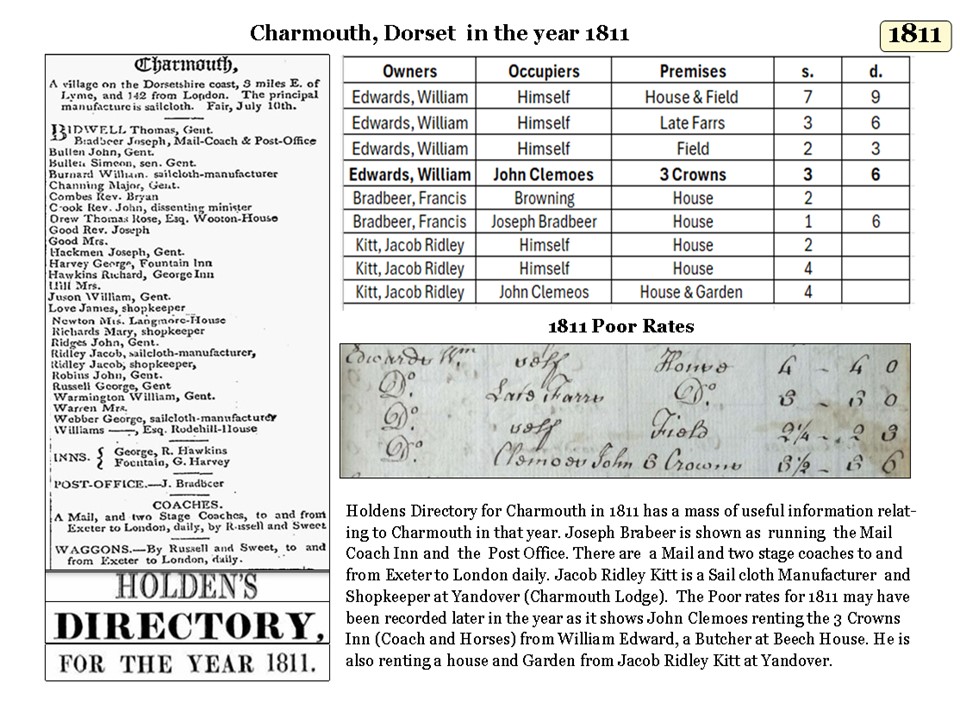 Charmouth, Dorset in the year 1811
1811
Charmouth,
A village on the Dorsetshire coast, 3 miles E. of
Lyme, and 142 from London. The principal
manufacture is sailcloth. Fair, July 10th.
BIDWELL Thomas, Gent.
Bradbeer Joseph, Mail-Coach & Post-Office
Bullen John, Gent.
Bullen Simeon, sen. Gent.
Burnard William. sailcloth-manufacturer
Channing Major, Gent.
Combes Rev. Bryan
Cook Rev. John, dissenting minister
Drew Thomas Rose, Esq. Wooton-House
Good Rev. Joseph
Good Mrs.
Hackmen Joseph, Gent.
Harvey George, Fountain Inn
Hawkins Richard, George Inn
Hill Mrs.
Juson William, Gent.
Love James, shopkeeper
Newton Mis. Langmore-House
Richards Mary, shopkeeper
Ridges John, Gent.
Ridley Jacob, sailcloth-manufacturer,
Ridley Jacob, shopkeeper,
Robins John, Gent.
Russell George, Gent
Warmington William, Gent.
Warren Mrs.
Webber George, sailcloth-manufacturer
Williams ——, Esq. Rodehill-House
INNS. { George, R. Hawkins
Fountain, G. Harvey
POST-OFFICE.—J. Bradbeer
COACHES.
A Mail, and two Stage Coaches, to and from
Exeter to London, daily, by Russell and Sweet
WAGGONS.—By Russell and Sweet, to and
from Exeter to London, daily.
HOLDEN'S
DIRECTORY,
FOR THE YEAR 1811.
Owners Occupiers Premises s. d.
Edwards, William Himself House & Field 7 9
Edwards, William Himself Late Farrs 3 6
Edwards, William Himself Field 2 3
Edwards, William John Clemoes 3 Crowns 3 6
Bradbeer, Francis Browning House 2
Bradbeer, Francis Joseph Bradbeer House 1 6
Kitt, Jacob Ridley Himself House 2
Kitt, Jacob Ridley Himself House 4
Kitt, Jacob Ridley John Clemeos House & Garden 4
1811 Poor Rates
Edwards Wm self House 4 - 4 0
Do. Late Farrs Do. 3 - 3 0
Do. self Field 2¼ - 2 3
Do. Clemoes John 3 Crowns 3½ - 3 6
Holdens Directory for Charmouth in 1811 has a mass of useful information relat-
ing to Charmouth in that year. Joseph Brabeer is shown as running the Mail
Coach Inn and the Post Office. There are a Mail and two stage coaches to and
from Exeter to London daily. Jacob Ridley Kitt is a Sail cloth Manufacturer and
Shopkeeper at Yandover (Charmouth Lodge). The Poor rates for 1811 may have
been recorded later in the year as it shows John Clemoes renting the 3 Crowns
Inn (Coach and Horses) from William Edward, a Butcher at Beech House. He is
also renting a house and Garden from Jacob Ridley Kitt at Yandover.